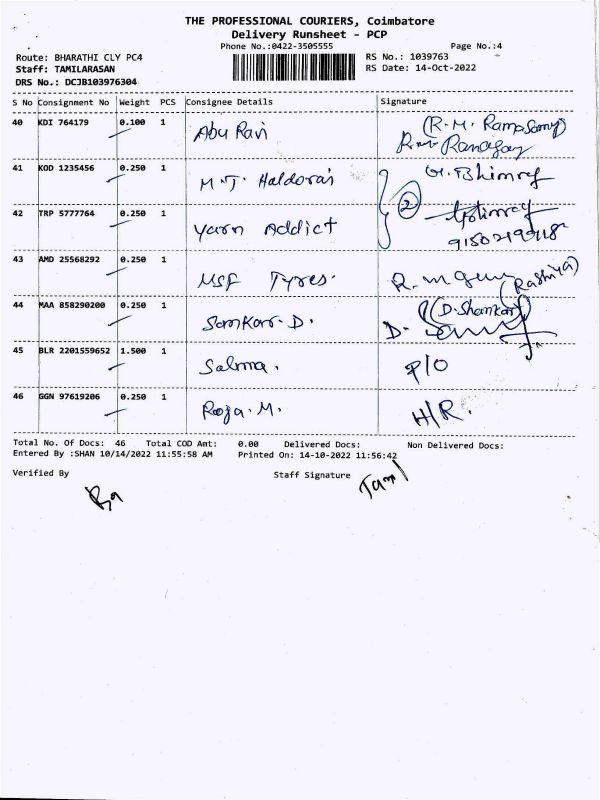 THE PROFESSIONAL COURIERS, Coimbatore
Delivery Runsheet - PCP
Phone No.:0422-3505555
Page No.:4
Route: BHARATHI CLY PC4
RS No.: 1039763
Staff: TAMILARASAN
RS Date: 14-Oct-2022
DRS No.: DCJB103976304
S No Consignment No Weight PCS Consignee Details Signature
40 KDI 764179 0.100 1 Abu Ravi (R.M. Ramasamy)
41 KOD 1235456 0.250 1 M.J. Haldorai G. Bhimraj
2
42 TRP 5777764 0.250 1 Yarn Addict
43 AMD 25568292 0.250 1 MSF Tyres. R.
44 MAA 858290200 0.250 1 Sankar. D. (D. Shankar)
45 BLR 2201559652 1.500 1 Salma. P/O
46 GGN 97619206 0.250 1 Roja. M. H/R.
Total No. Of Docs: 46 Total COD Amt: 0.00 Delivered Docs: Non Delivered Docs:
Entered By :SHAN 10/14/2022 11:55:58 AM Printed On: 14-10-2022 11:56:42
Verified By Staff Signature
Tamil